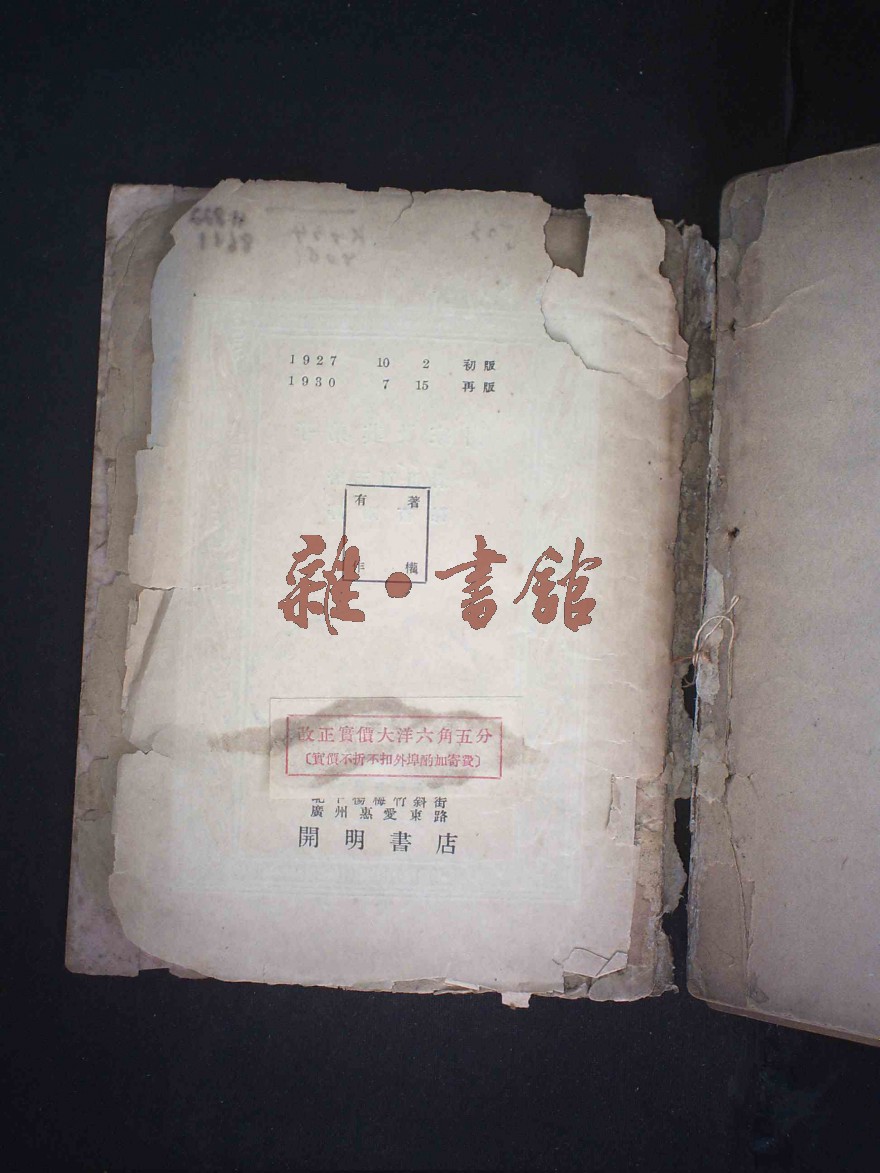 1927 10 2 初版
1930 7 15 再版
有 著
作 權
雜·書館
改正實價大洋六角五分
〔實價不折不扣外埠酌加寄費〕
楊梅竹斜街
廣州惠愛東路
開明書店